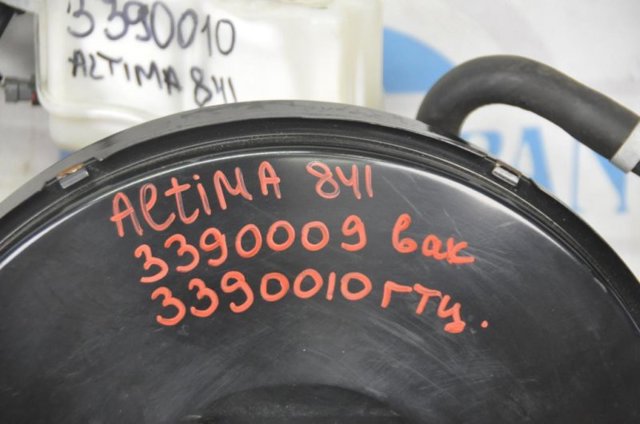 3390010
ALTIMA 841
ALTIMA 841
3390009 вак
3390010 гтц.